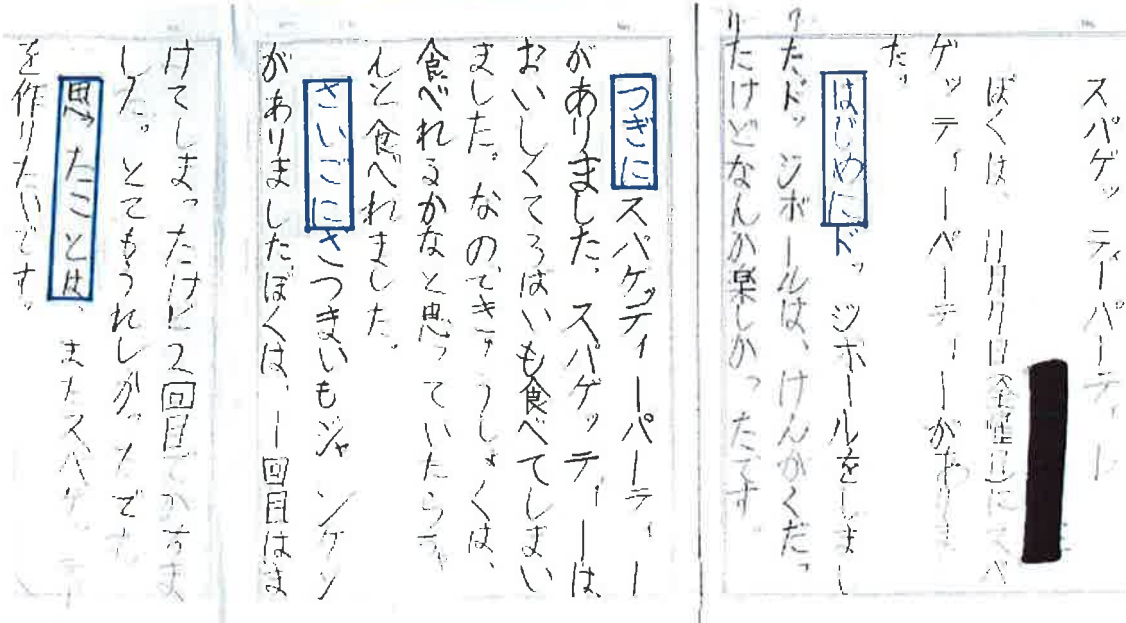 スパゲッティーパーティー
ぼくは、11月7日金曜日にスパ
ゲッティーパーティーがありま
た。
はじめにドッジボールをしまし
たドッジボールは、けんがくだっ
たけどなんか楽しかったです。
つぎにスパゲッティーパーティー
がありました。スパゲッティーは
おいしくてろはいも食べてしまい
ました。なのできゅうしょくは、
食べれるかなと思っていたらちゃ
んと食べれました。
さいごにさつまいもジャンケン
がありましたぼくは、1回目はま
けてしまったけど2回目でかちま
した。とてもうれしかったです
思ったことは、またスパゲッティー
を作りたいです。